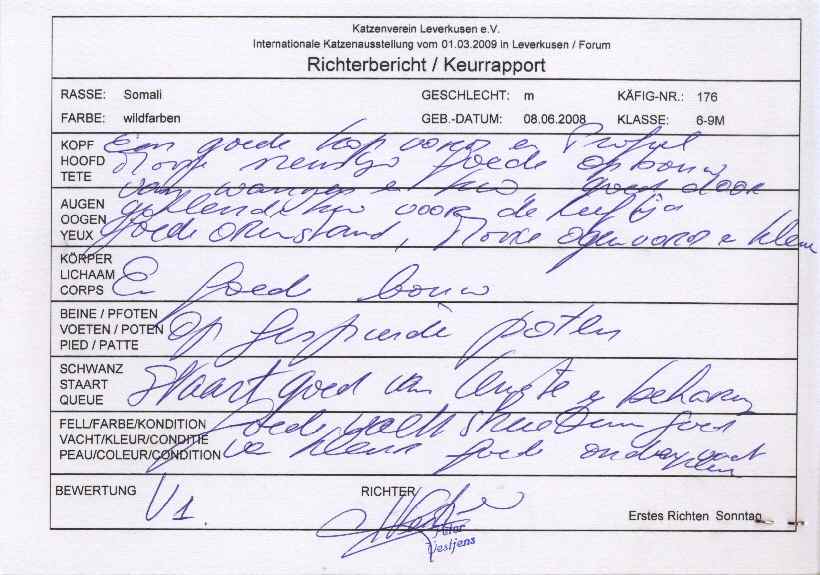 Katzenverein Leverkusen e.V.
Internationale Katzenausstellung vom 01.03.2009 in Leverkusen / Forum
Richterbericht / Keurrapport
RASSE: Somali GESCHLECHT: m KÄFIG-NR.: 176
FARBE: wildfarben GEB.-DATUM: 08.06.2008 KLASSE: 6-9M
KOPF Een goede kop vorm en Profiel
HOOFD Mooie goede opbouw
TETE van wangen en kin goed door
AUGEN voor de leeftijd
OOGEN goede orenstand, Mooie ogen vorm en kleur
YEUX
KÖRPER
LICHAAM En goede bouw
CORPS
BEINE / PFOTEN
VOETEN / POTEN Op gespierde poten
PIED / PATTE
SCHWANZ
STAART Staart goed van lengte en beharing
QUEUE
FELL/FARBE/KONDITION Goede vacht structuur goed
VACHT/KLEUR/CONDITIE
PEAU/COLEUR/CONDITION kleur goede ondervacht
BEWERTUNG U1 RICHTER
Peter
Vestjens
Erstes Richten Sonntag